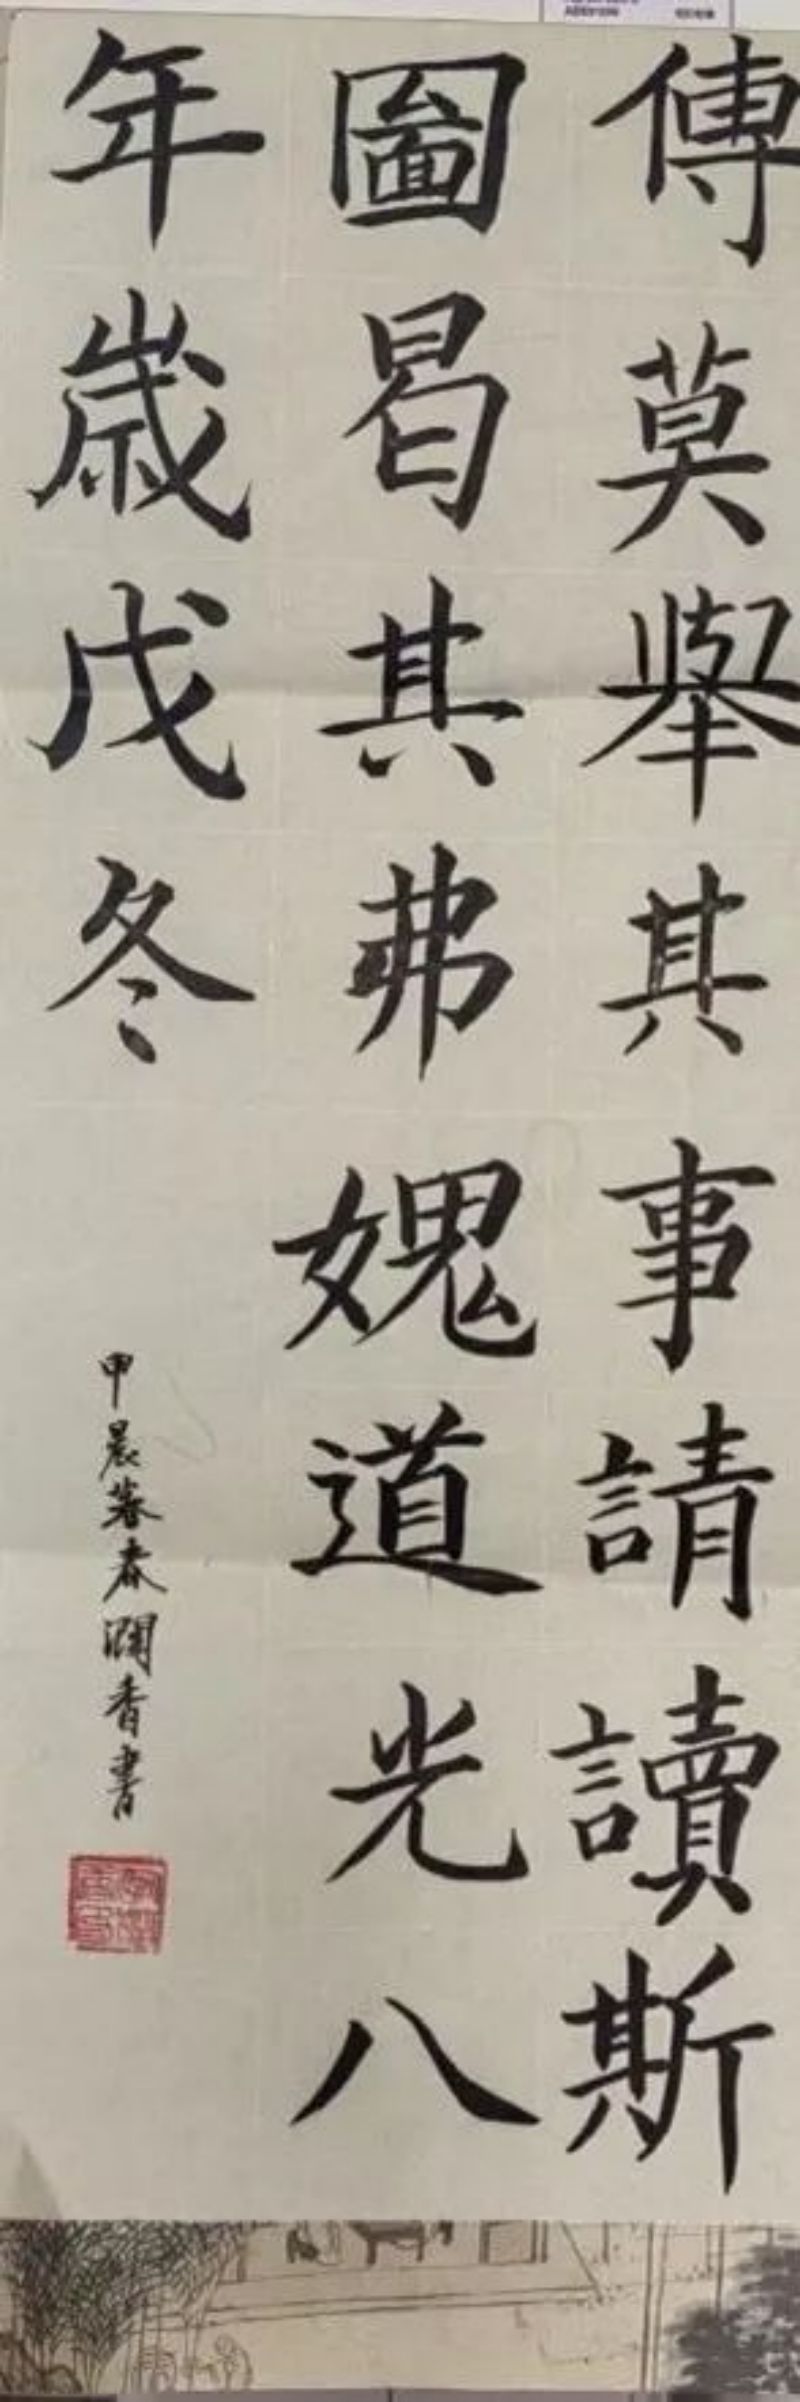 傳莫舉其事請讀斯
圖曷其弗媿道光八
年歲戊冬
甲晨暮春瀾香書